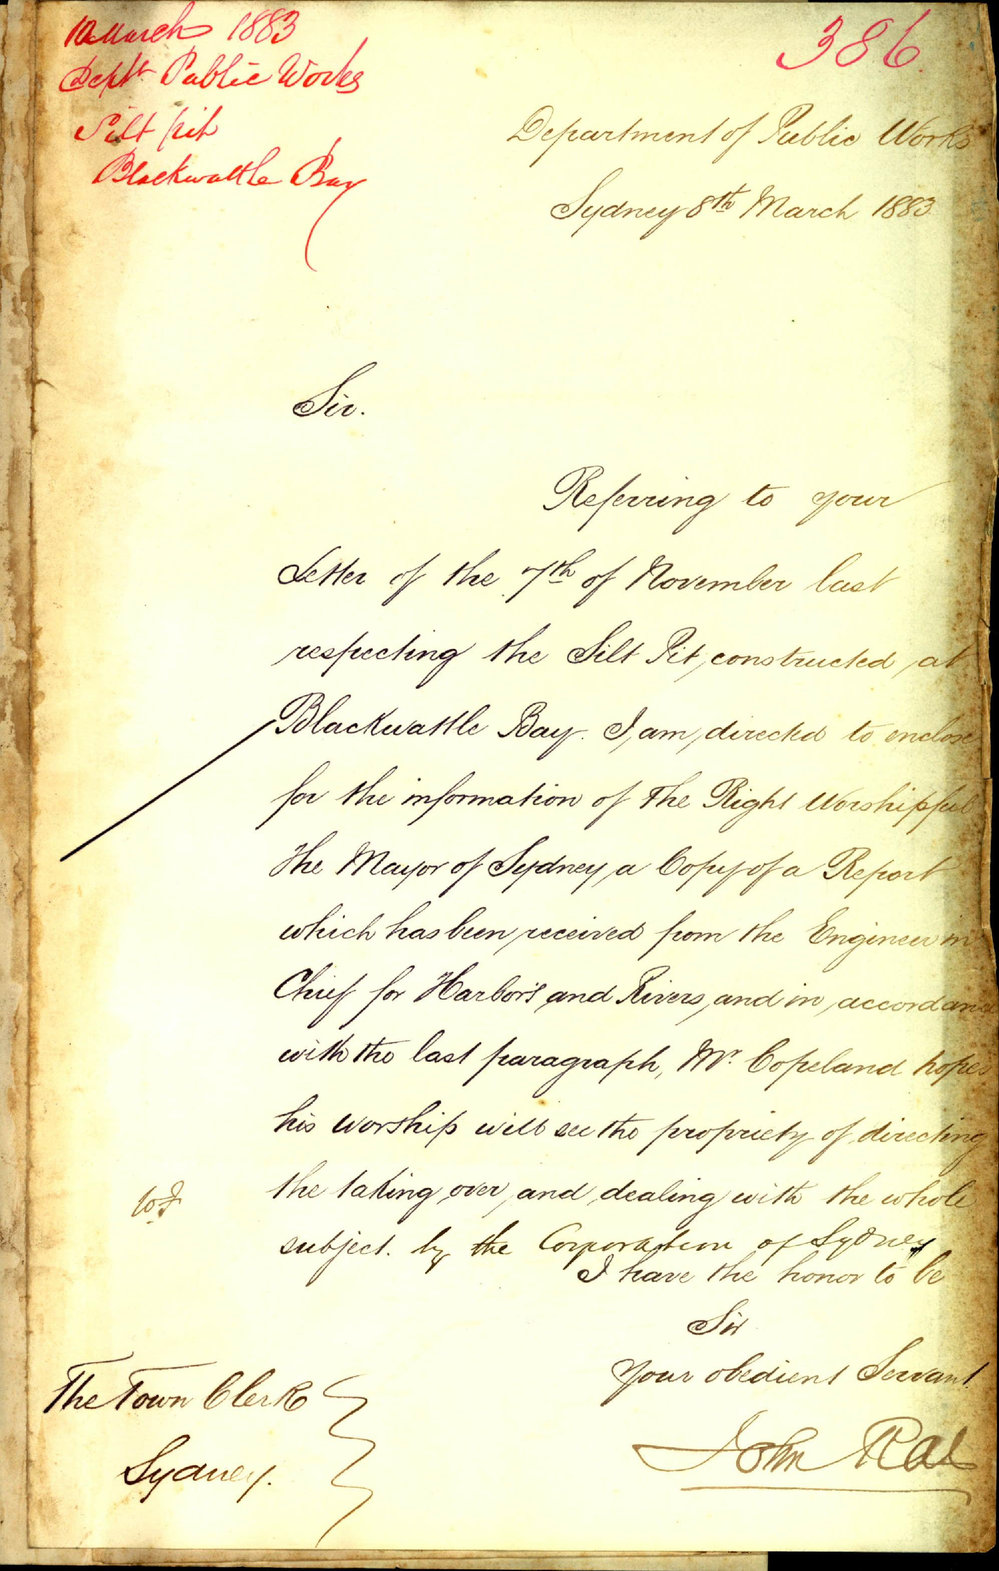 10 March 1883
Dept Public Works
Silt pit
Blackwattle Bay
386
Department of Public Works
Sydney 8th March 1883
Sir.
Referring to your
Letter of the 7th of November last
respecting the Silt Pit, constructed, at
Blackwattle Bay. I, am, directed to enclose
for the information of the Right Worshipful
the Mayor of Sydney, a Copy of a Report
which has been received from the Engineer in
Chief for Harbors and Rivers, and in accordance
with the last paragraph, Mr. Copeland hopes
his Worship will see the propriety of directing
the taking over, and dealing with the whole
subject. by the Corporation of Sydney
I have the honor to be
Sir
Your obedient Servant.
John Rae
The Town Clerk
Sydney.